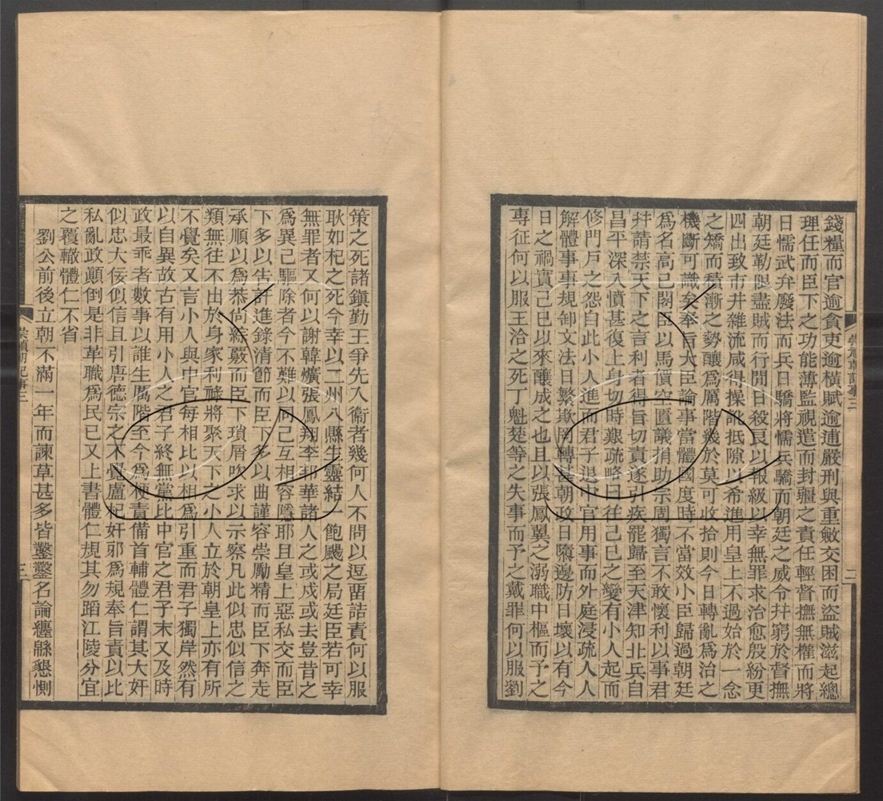 錢糧而官逾貪吏逾橫賦逾逋嚴刑與重斂交困而盜賊滋起總
理任而臣下之功能薄監視遣而封疆之責任輕督撫無權而將
日懦武弁廢法而兵日驕將懦兵驕而朝廷之威令幷窮於督撫
朝廷勒限盡賊而行間日殺良以報級以幸無罪求治愈殷紛更
四出致市井雜流咸得操
抵隙以希進用皇上不過始於一念
之矯而積漸之勢釀為厲階幾於莫可收拾則今日轉亂為治之
機斷可識矣奉旨大臣論事當體國度時不當效小臣歸過朝廷
為名高已閣臣以馬價空匱議捐助宗周獨言不敢懷利以事君
幷請禁天下之言利者得旨切責遂引疾罷歸至天津知北兵自
昌平深入憤甚復上身切時艱疏略曰往己巳之變有小人起而
修門戶之怨自此小人進而君子退中官用事而外庭浸疏人人
解體事事規卸文法日繁欺罔轉甚朝政日隳邊防日壞以有今
日之禍實己巳以來釀成之也且以張鳳翼之溺職中樞而予之
專征何以服王洽之死丁魁楚等之失事而予之戴罪何以服劉
策之死諸鎮勤王爭先入衛者幾何人不問以逗留詰責何以服
耿如杞之死今幸以二州八縣生靈結一飽颺之局廷臣若可幸
無罪者又何以謝韓爌張鳳翔李邦華諸人之或戍或去豈昔之
為異己驅除者今不難以同己互相容隱耶且皇上惡私交而臣
下多以告訐進錄清節而臣下多以曲謹容崇勵精而臣下奔走
承順以為恭尚綜覈而臣下瑣屑吹求以示察凡此似忠似信之
類無往不出於身家利祿將聚天下之小人立於朝皇上亦有所
不覺矣又言小人與中官每相比以相為引重而君子獨岸然有
以自異故古有用小人之君子終無黨比中官之君子末又及時
政最乖者數事以誰生厲階至今為梗責備首輔體仁謂其大奸
似忠大佞似信且引唐德宗之不覺盧杞奸邪為規奉旨責以比
私亂政顛倒是非革職為民已又上書體仁規其勿蹈江陵分宜
之覆轍體仁不省
劉公前後立朝不滿一年而諫草甚多皆鑿鑿名論纏緜懇惻
二
三